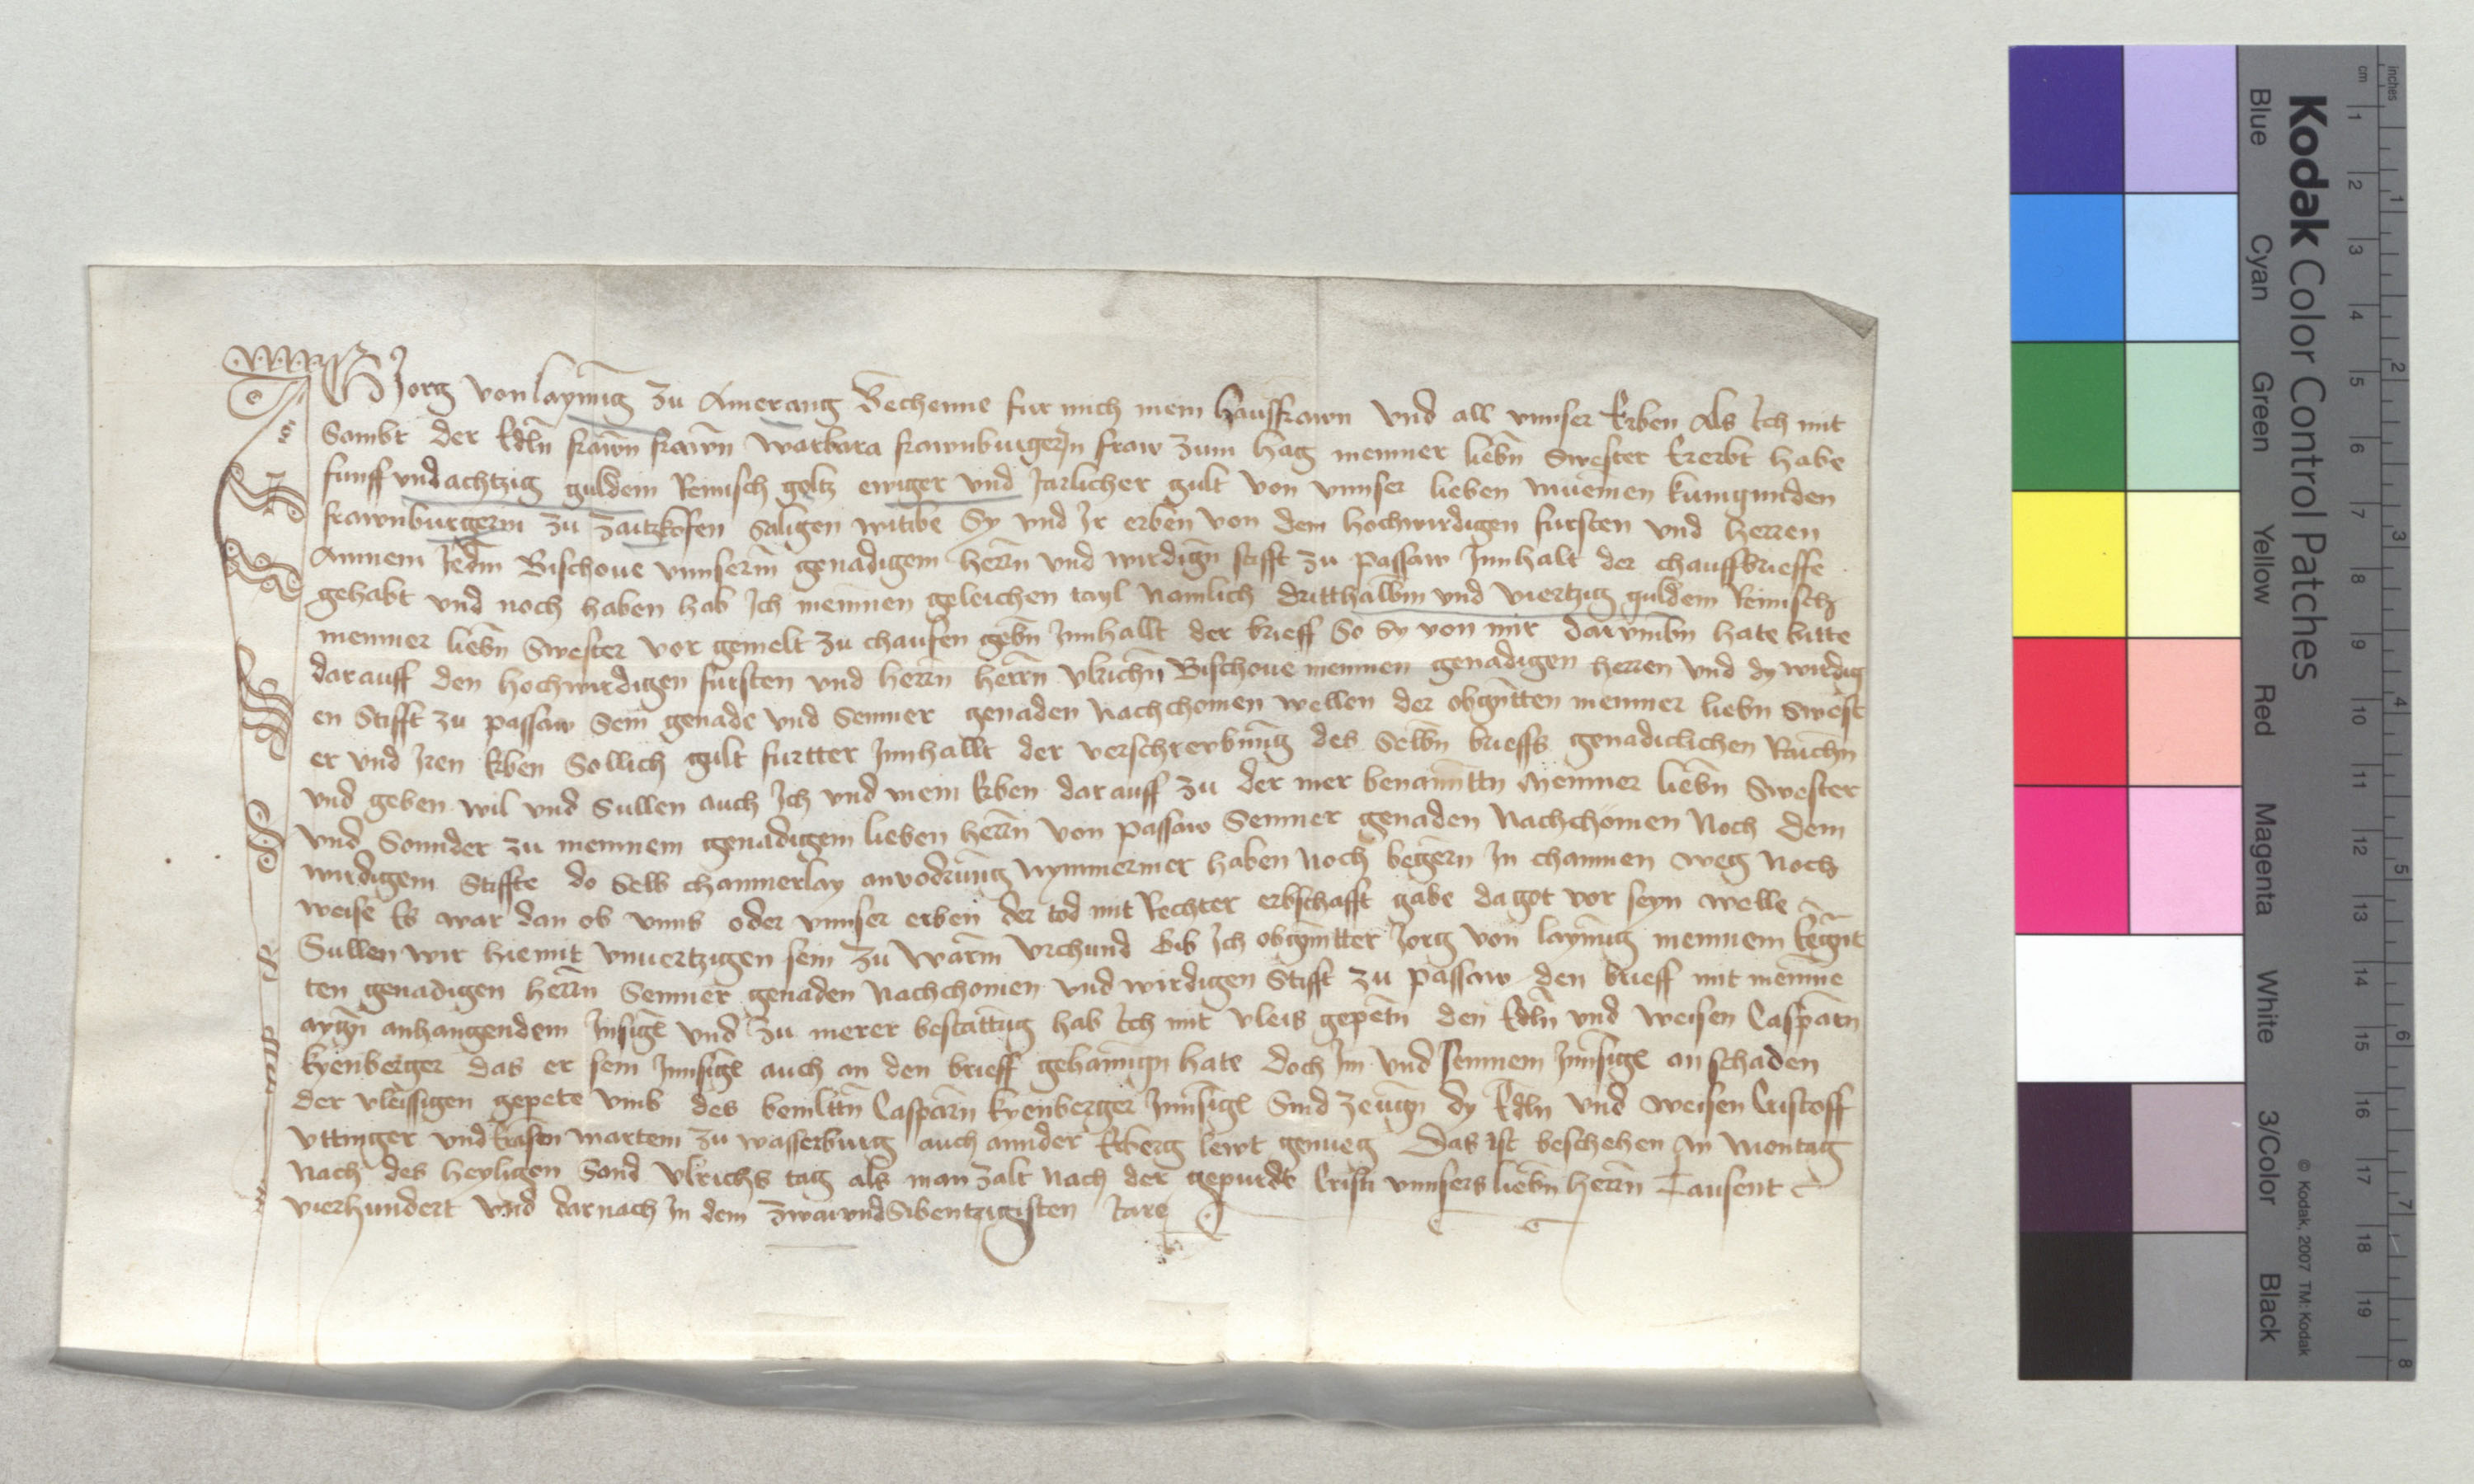 Ich Jorg von layming zu Amerang Bechenne fur mich mein hausfrawn vnd all vnnser Erben Als Ich mit
Sambt der Edln frawn frawn Warbara frawnbergerin fraw zum hag meinner liebn Swester Ererbt habe
funff vnd achtzig guldein Reinisch geltz ewiger vnd Jarlicher gult von vnnser lieben muemen kunigunden
frawnburgerin zu zaitzkofen saligen witibe Sy vnd Jr erben von dem hochwirdigen fursten vnd herren
Ainnem Jedm Bischoue vnnserm genadigem herrn vnd wirdign stifft zu passaw Innhalt der chauffbrieffe
gehabt vnd noch haben hab Ich meinnen geleichen tayl Namlich dritthalbm vnd viertzig guldein Reinisch
meinner liebn Swester vor gemelt zu chaufen gebn Innhallt der brieff So Sy von mir darvmbn hate bitte
darauff den hochwirdigen fursten vnd herrn herrn vlrichn Bischoue meinnen genadigen herren vnd dy wirdig
en Stifft zu passaw Sein genade vnd Seinner genaden Nachchomen wellen der obgntten meinner liebn Swest
er vnd Jren Erben Sollich gult furtter Innhallt der verschreybung des Selbn brieffs genadiclichen Raichn
vnd geben wil vnd Sullen auch Ich vnd mein Erben darauff zu der mer benanntten Meinner liebn Swester
vnd Sonnder zu meinnem genadigem lieben herrn von passaw Seinner genaden Nachchomen Noch dem
wirdigem Stiffte do Selb chainnerlay anvodrung Nymmermer haben Noch begern In chainnen weg Noch
weise Es war dan ob vnns oder vnnser erben der tod mit Rechter erbschafft gabe da got vor seyn welle
Sullen wir hiemit vnuertzigen sein zu warm vrchund Gib Ich obgnntter Jorg von layming meinnem Egnt
ten genadigen herrn Seinner genaden Nachchomen vnd wirdigen Stifft zu passaw den brieff mit meinne
aygn anhangendem Insigl vnd zu merer bestattug hab Ich mit vleis gepetn den Edln vnd Weisen Casparn
kyenberger das er sein Innsigl auch an den brieff gehanngn hate doch Im vnd Seinnem Innsigl an schaden
der vleissigen gepete vmb des bemlttn Casparn kyenberger Innsigl Sind zeugn dy Edln vnd Weisen Cristoff
vttinger vnd martein zu wasserburg auch annder Erberg lewt genueg Das ist beschehen An Montag
Nach des heyligen Sand vlrichs tag als man zalt Nach der gepurde Cristi vnnsers liebn herrn Tausent
vierhundert vnd darnach In dem zwaivndSibentzigisten Jare
Kodak Color Control Patches
Blue Cyan Green Yellow Red Magenta White 3/Color Black
© Kodak, 2007 TM: Kodak
cm 1 2 3 4 5 6 7 8 9 10 11 12 13 14 15 16 17 18 19
inches 1 2 3 4 5 6 7 8